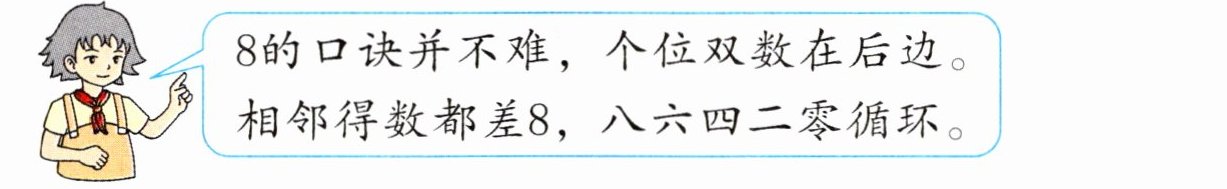 8的口诀并不难，个位双数在后边。
相邻得数都差8，八六四二零循环。